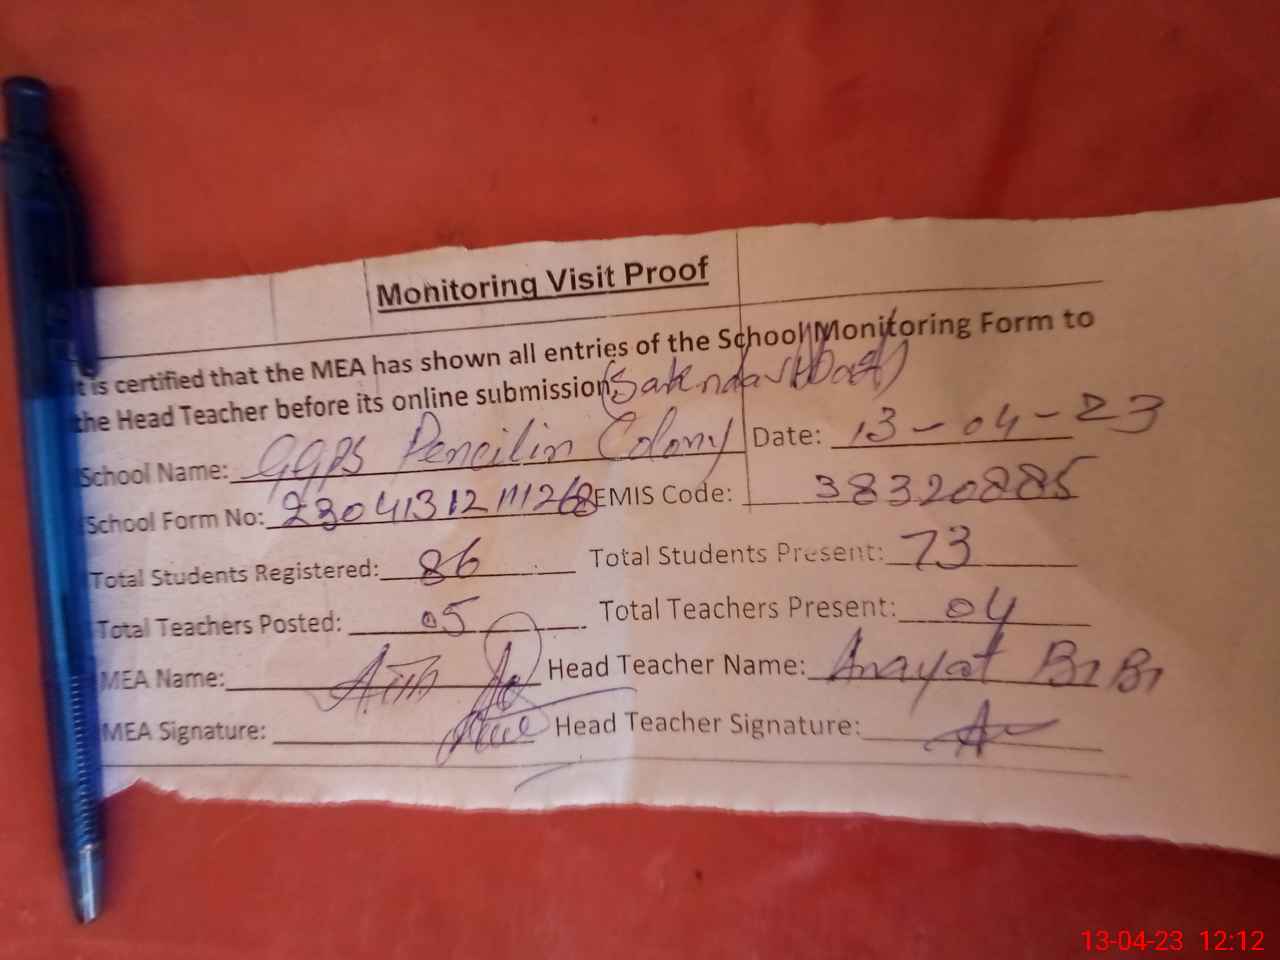 Monitoring Visit Proof
It is certified that the MEA has shown all entries of the School Monitoring Form to
the Head Teacher before its online submission.
School Name: GGPS Pencilin Colony Date: 13-04-23
School Form No: 23041312111268 EMIS Code: 38320885
Total Students Registered: 86 Total Students Present: 73
Total Teachers Posted: 05 Total Teachers Present: 04
MEA Name: Head Teacher Name: Anayat Bi Bi
MEA Signature: Head Teacher Signature:
13-04-23 12:12